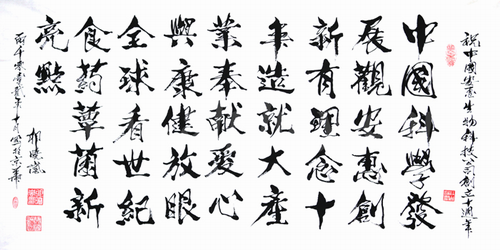 祝中國安惠生物科技公司創立十週年
中國科學發
展觀安惠創
新有理念十
年造就大產
業奉獻愛心
興康健放眼
全球看世紀
食葯蕈菌新
亮點
年十月寫於京華